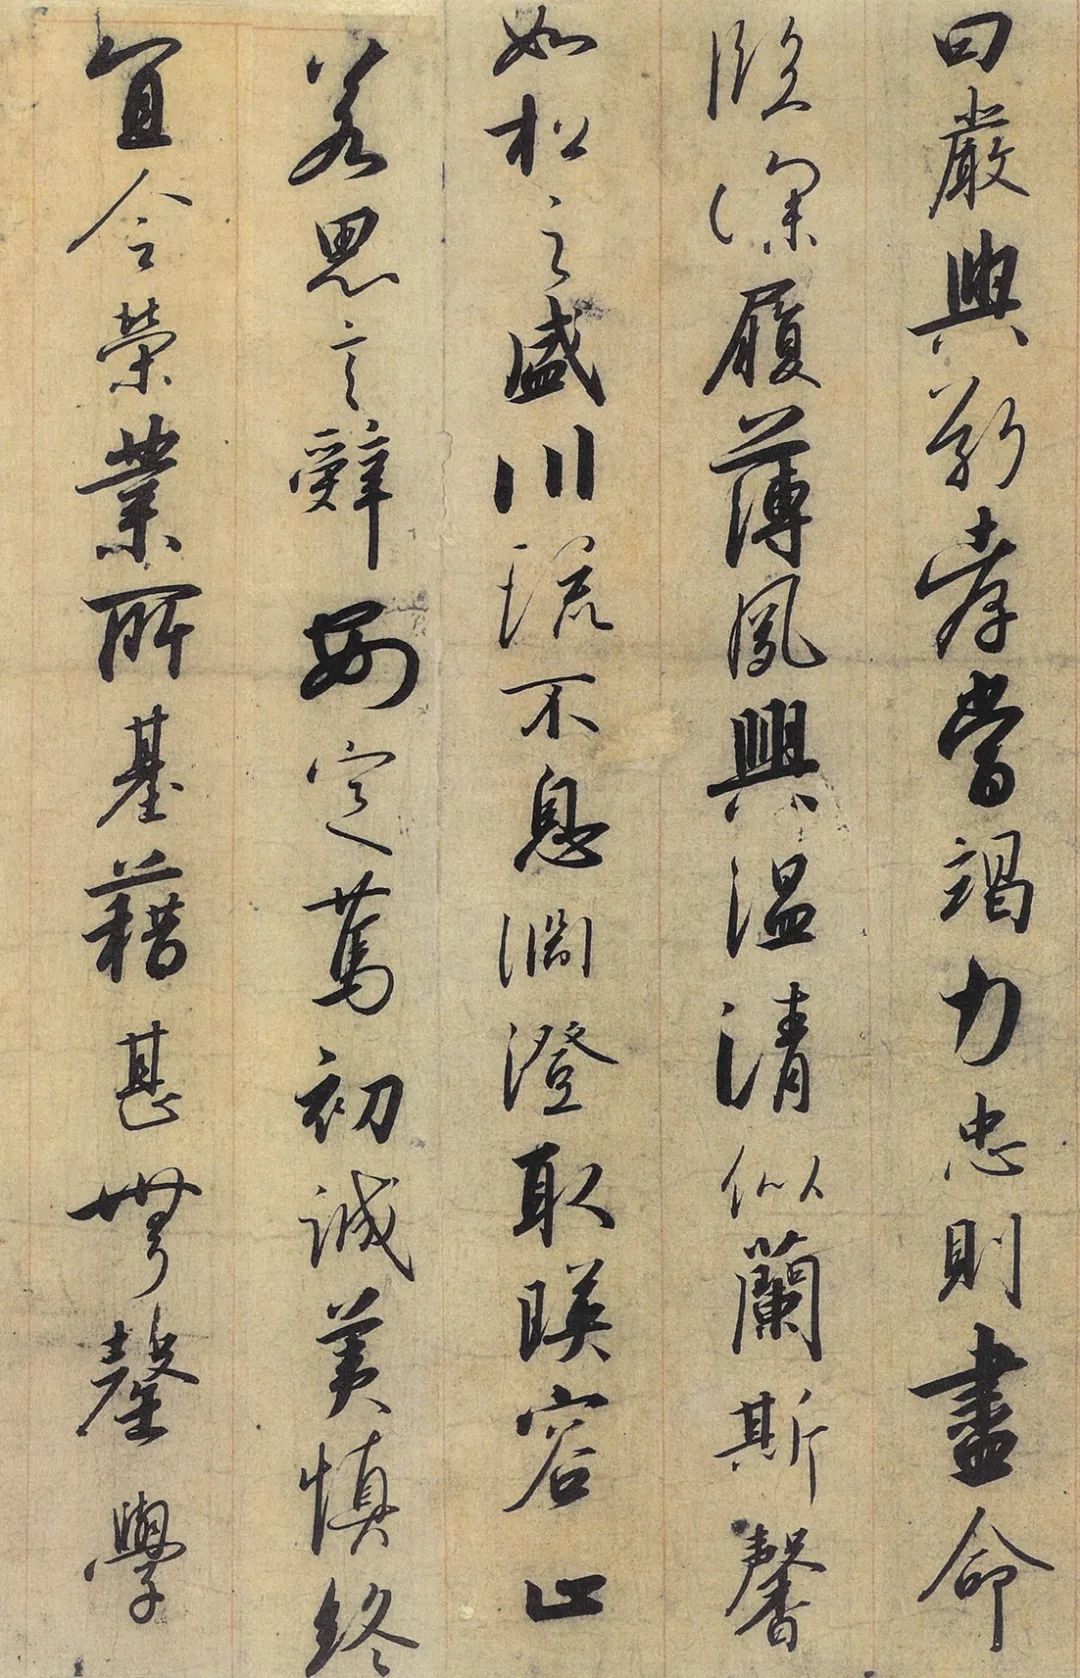 曰嚴與敬孝當竭力忠則盡命
臨深履薄夙興温清似蘭斯馨
如松之盛川流不息淵澄取暎容止
若思言辭安定篤初誠美慎終
宜令榮業所基藉甚無罄學